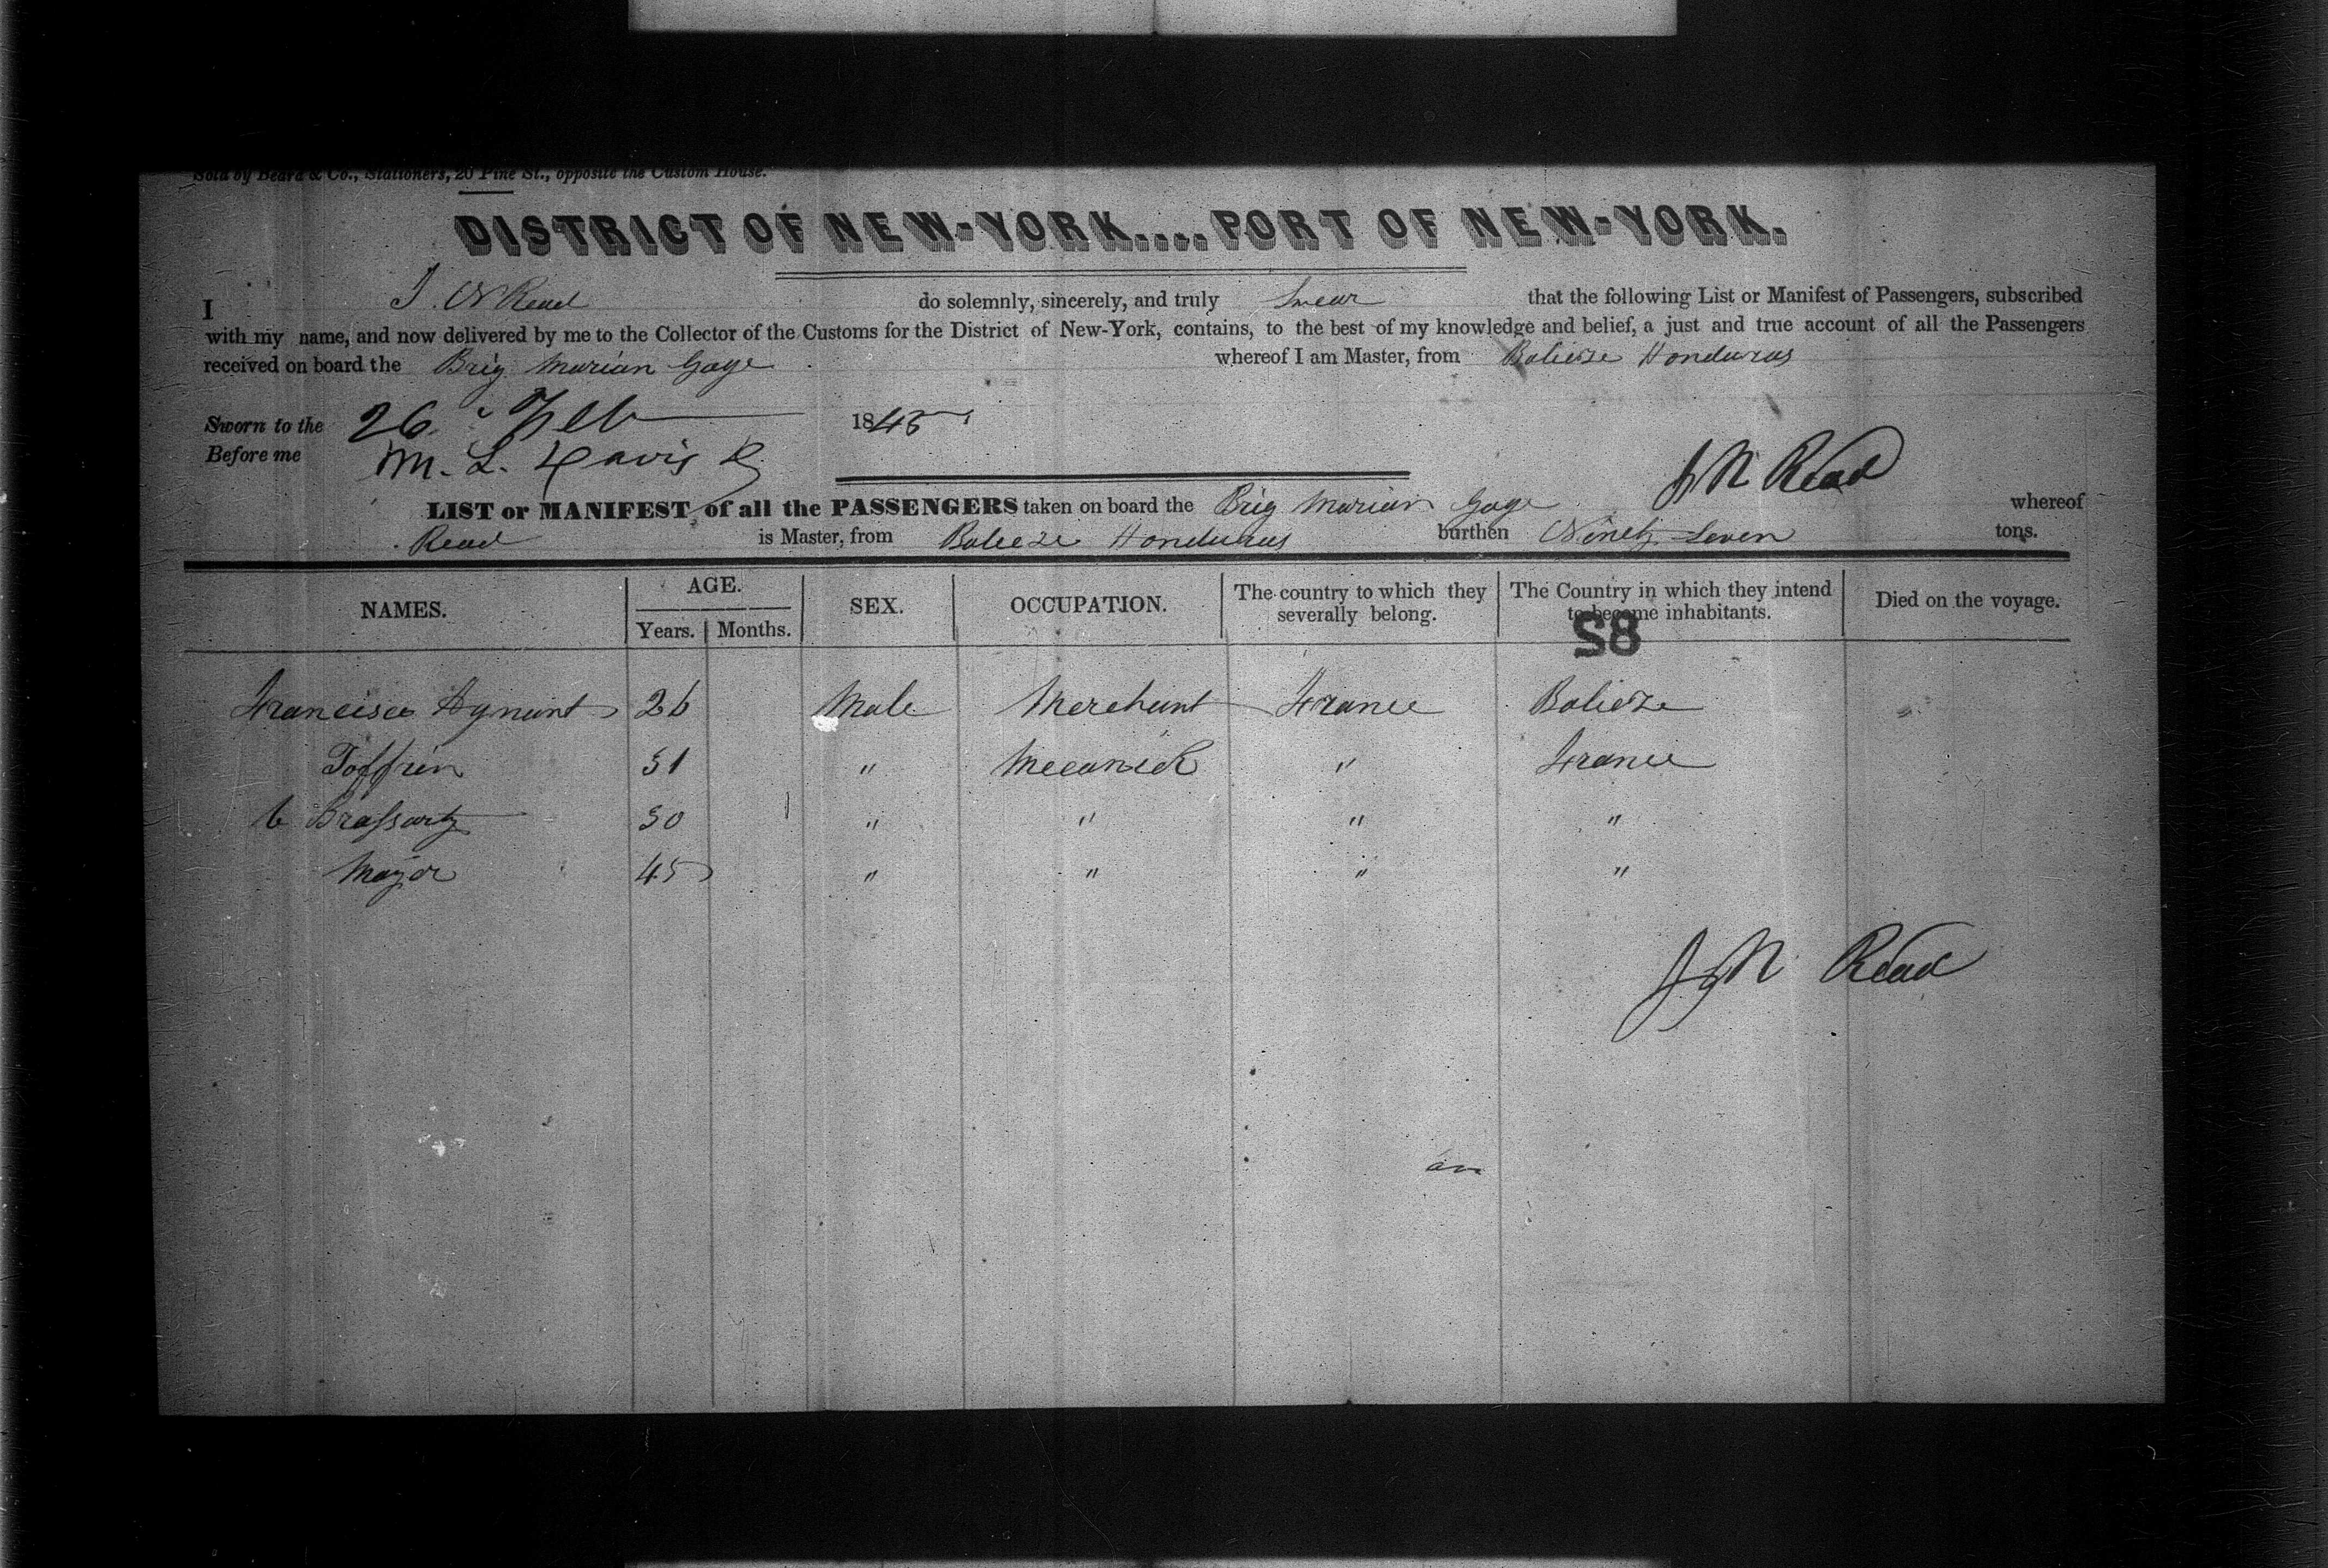 Sold by Beard & Co., Stationers, 20 Pine St., opposite the Custom House.
DISTRICT OF NEW-YORK....PORT OF NEW-YORK.
I J. N Read do solemnly, sincerely, and truly Swear that the following List or Manifest of Passengers, subscribed
with my name, and now delivered by me to the Collector of the Customs for the District of New-York, contains, to the best of my knowledge and belief, a just and true account of all the Passengers
received on board the Brig Marian Gage whereof I am Master, from Balieze Honduras
Sworn to the 26 Feb 1845
Before me M. L. Davis
J N Read
LIST or MANIFEST of all the PASSENGERS taken on board the Brig Marian Gage whereof
Read is Master, from Balieze Honduras burthen Ninety Seven tons.
NAMES. AGE. Years. Months. SEX. OCCUPATION. The country to which they severally belong. The Country in which they intend to become inhabitants. Died on the voyage.
58
Francisco 26 Male Merchant France Balieze
Toffrin 31 " Mecanick " France
Brassart 30 " " " "
Mayer 45 " " " "
J N Read